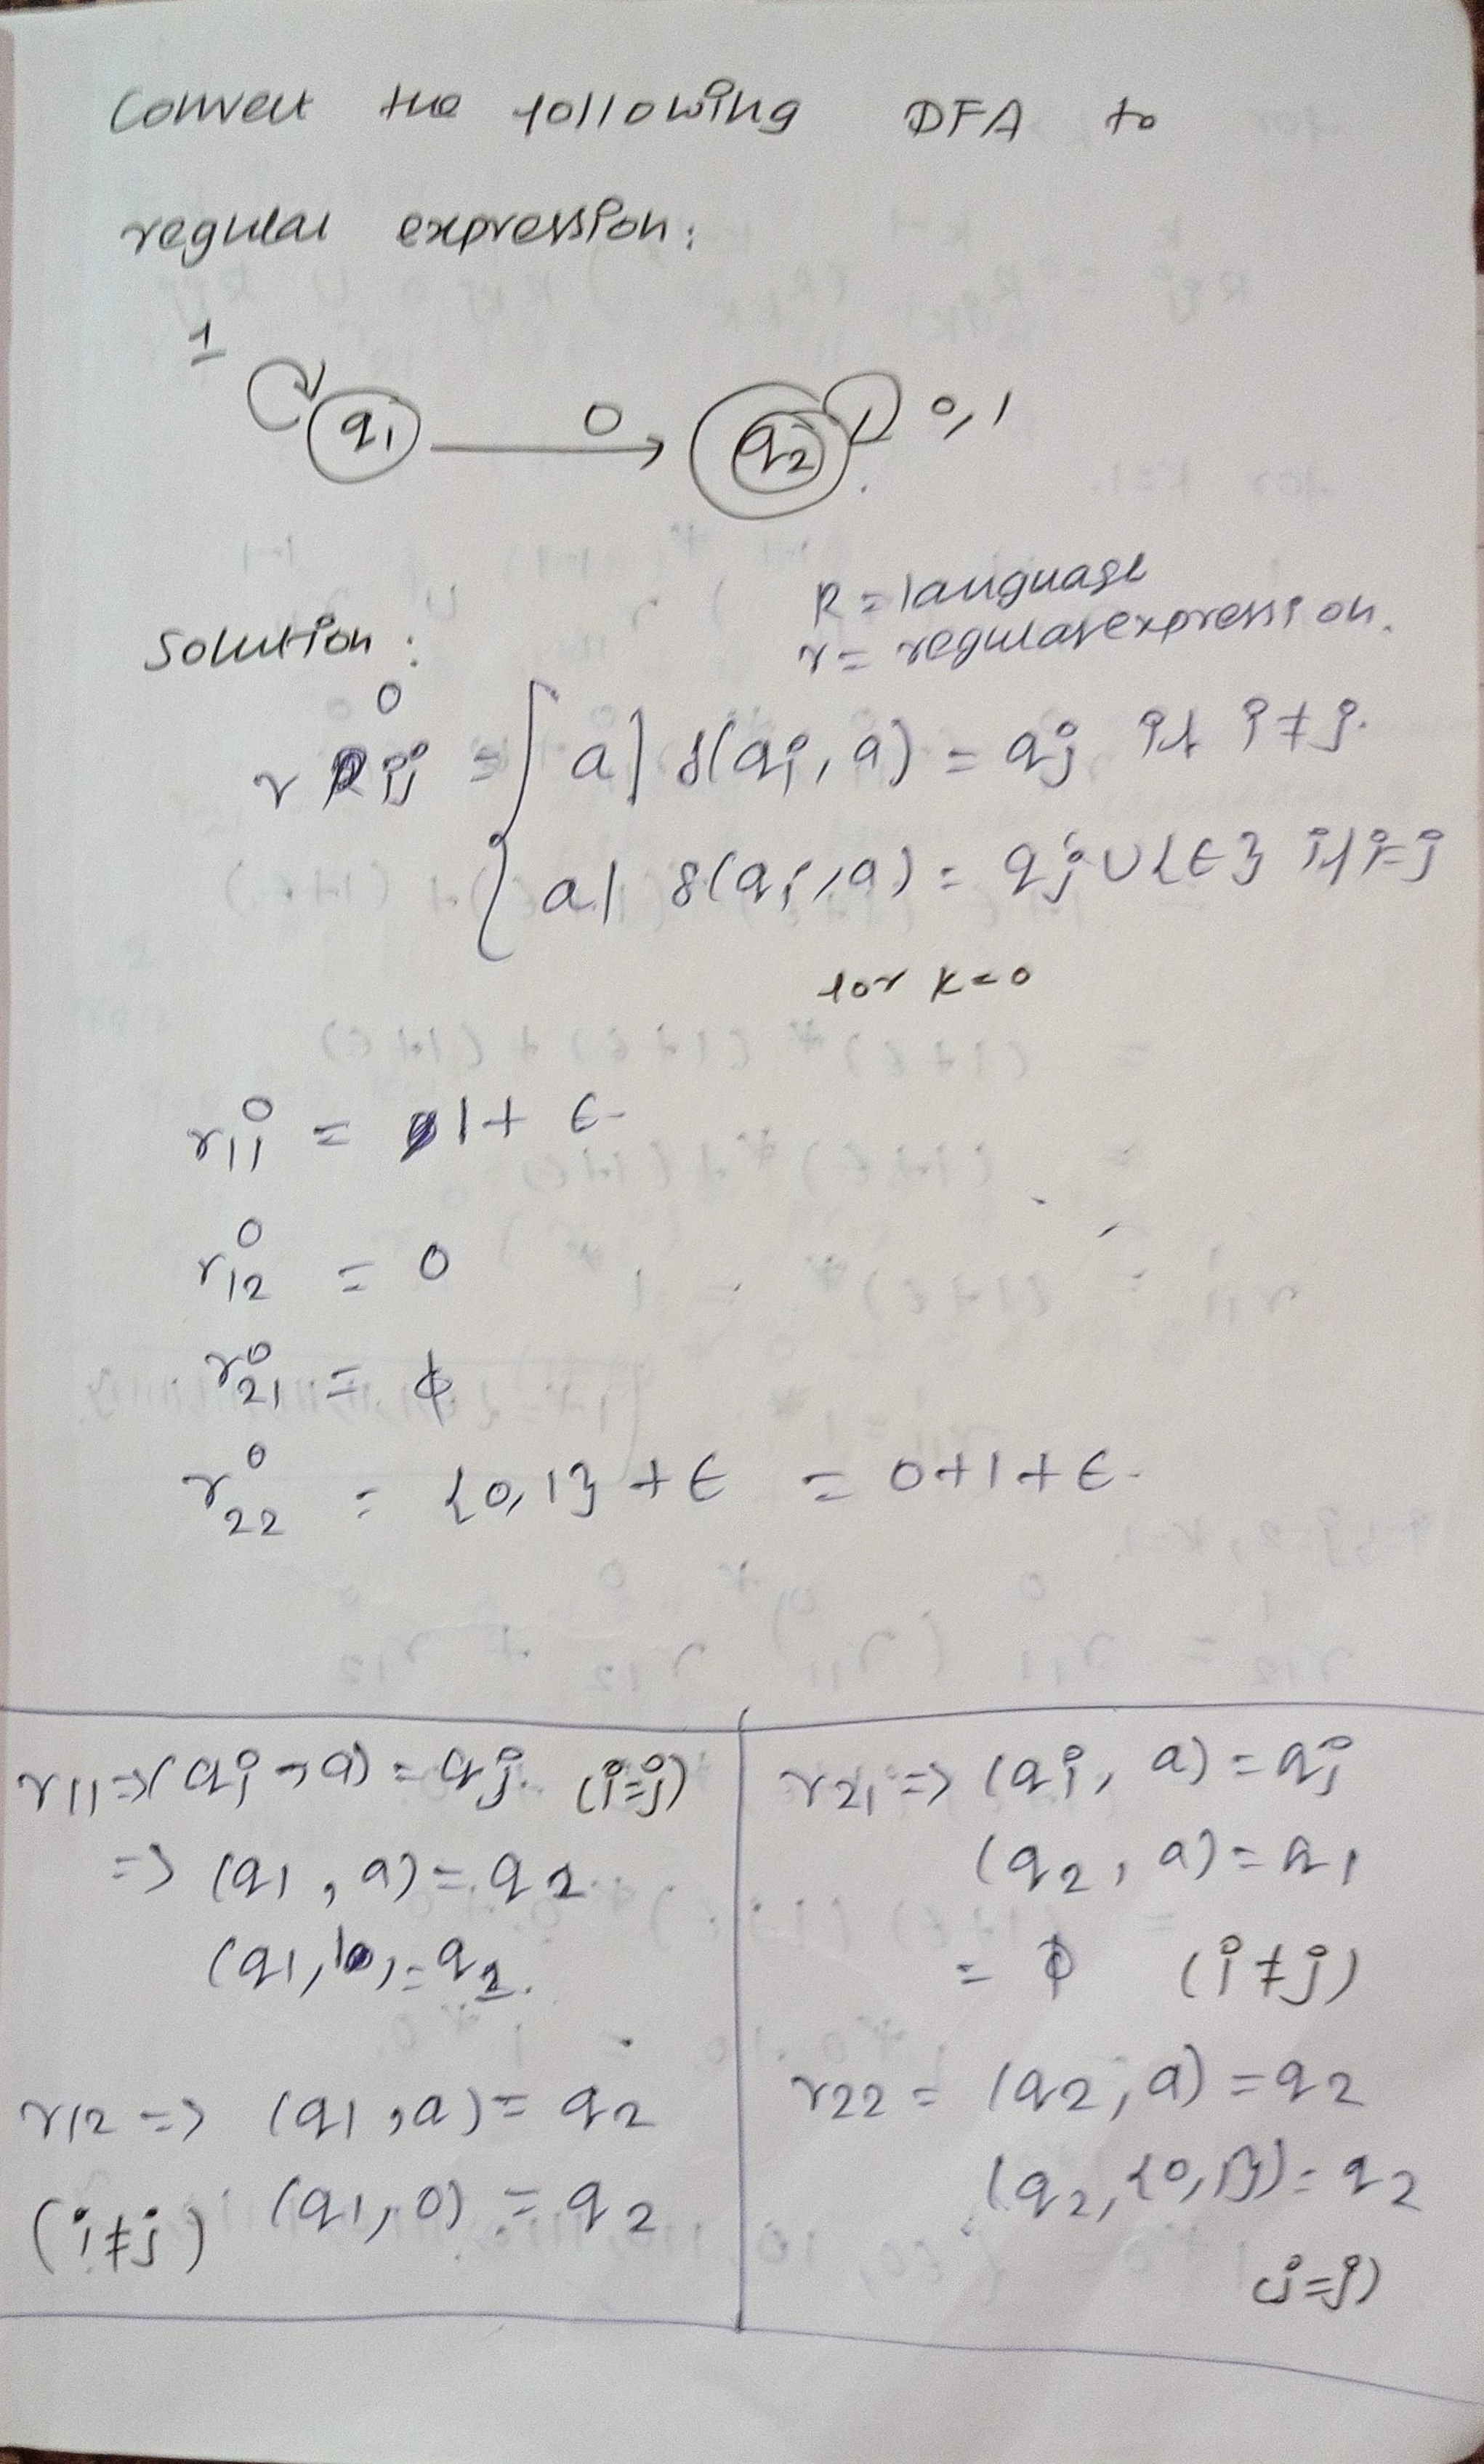 Convert the following DFA to
regular expression:
1
q1 0 q2 0,1
R = language
r = regular expression.
Solution:
r ij^0 = { a | δ(qi, a) = qj if i ≠ j.
a | δ(qi, a) = qj ∪ {ϵ} if i=j
for k=0
r11^0 = 1 + ϵ
r12^0 = 0
r21^0 = ϕ
r22^0 = {0,1} + ϵ = 0+1+ϵ.
r11 => (qi, a) = qj. (i=j)
=> (q1, a) = q2
(q1, 1) = q2.
r12 => (q1, a) = q2
(i≠j) (q1, 0) = q2
r21 => (qi, a) = qj
(q2, a) = q1
= ϕ (i≠j)
r22 = (q2, a) = q2
(q2, {0,1}) = q2
(i=j)